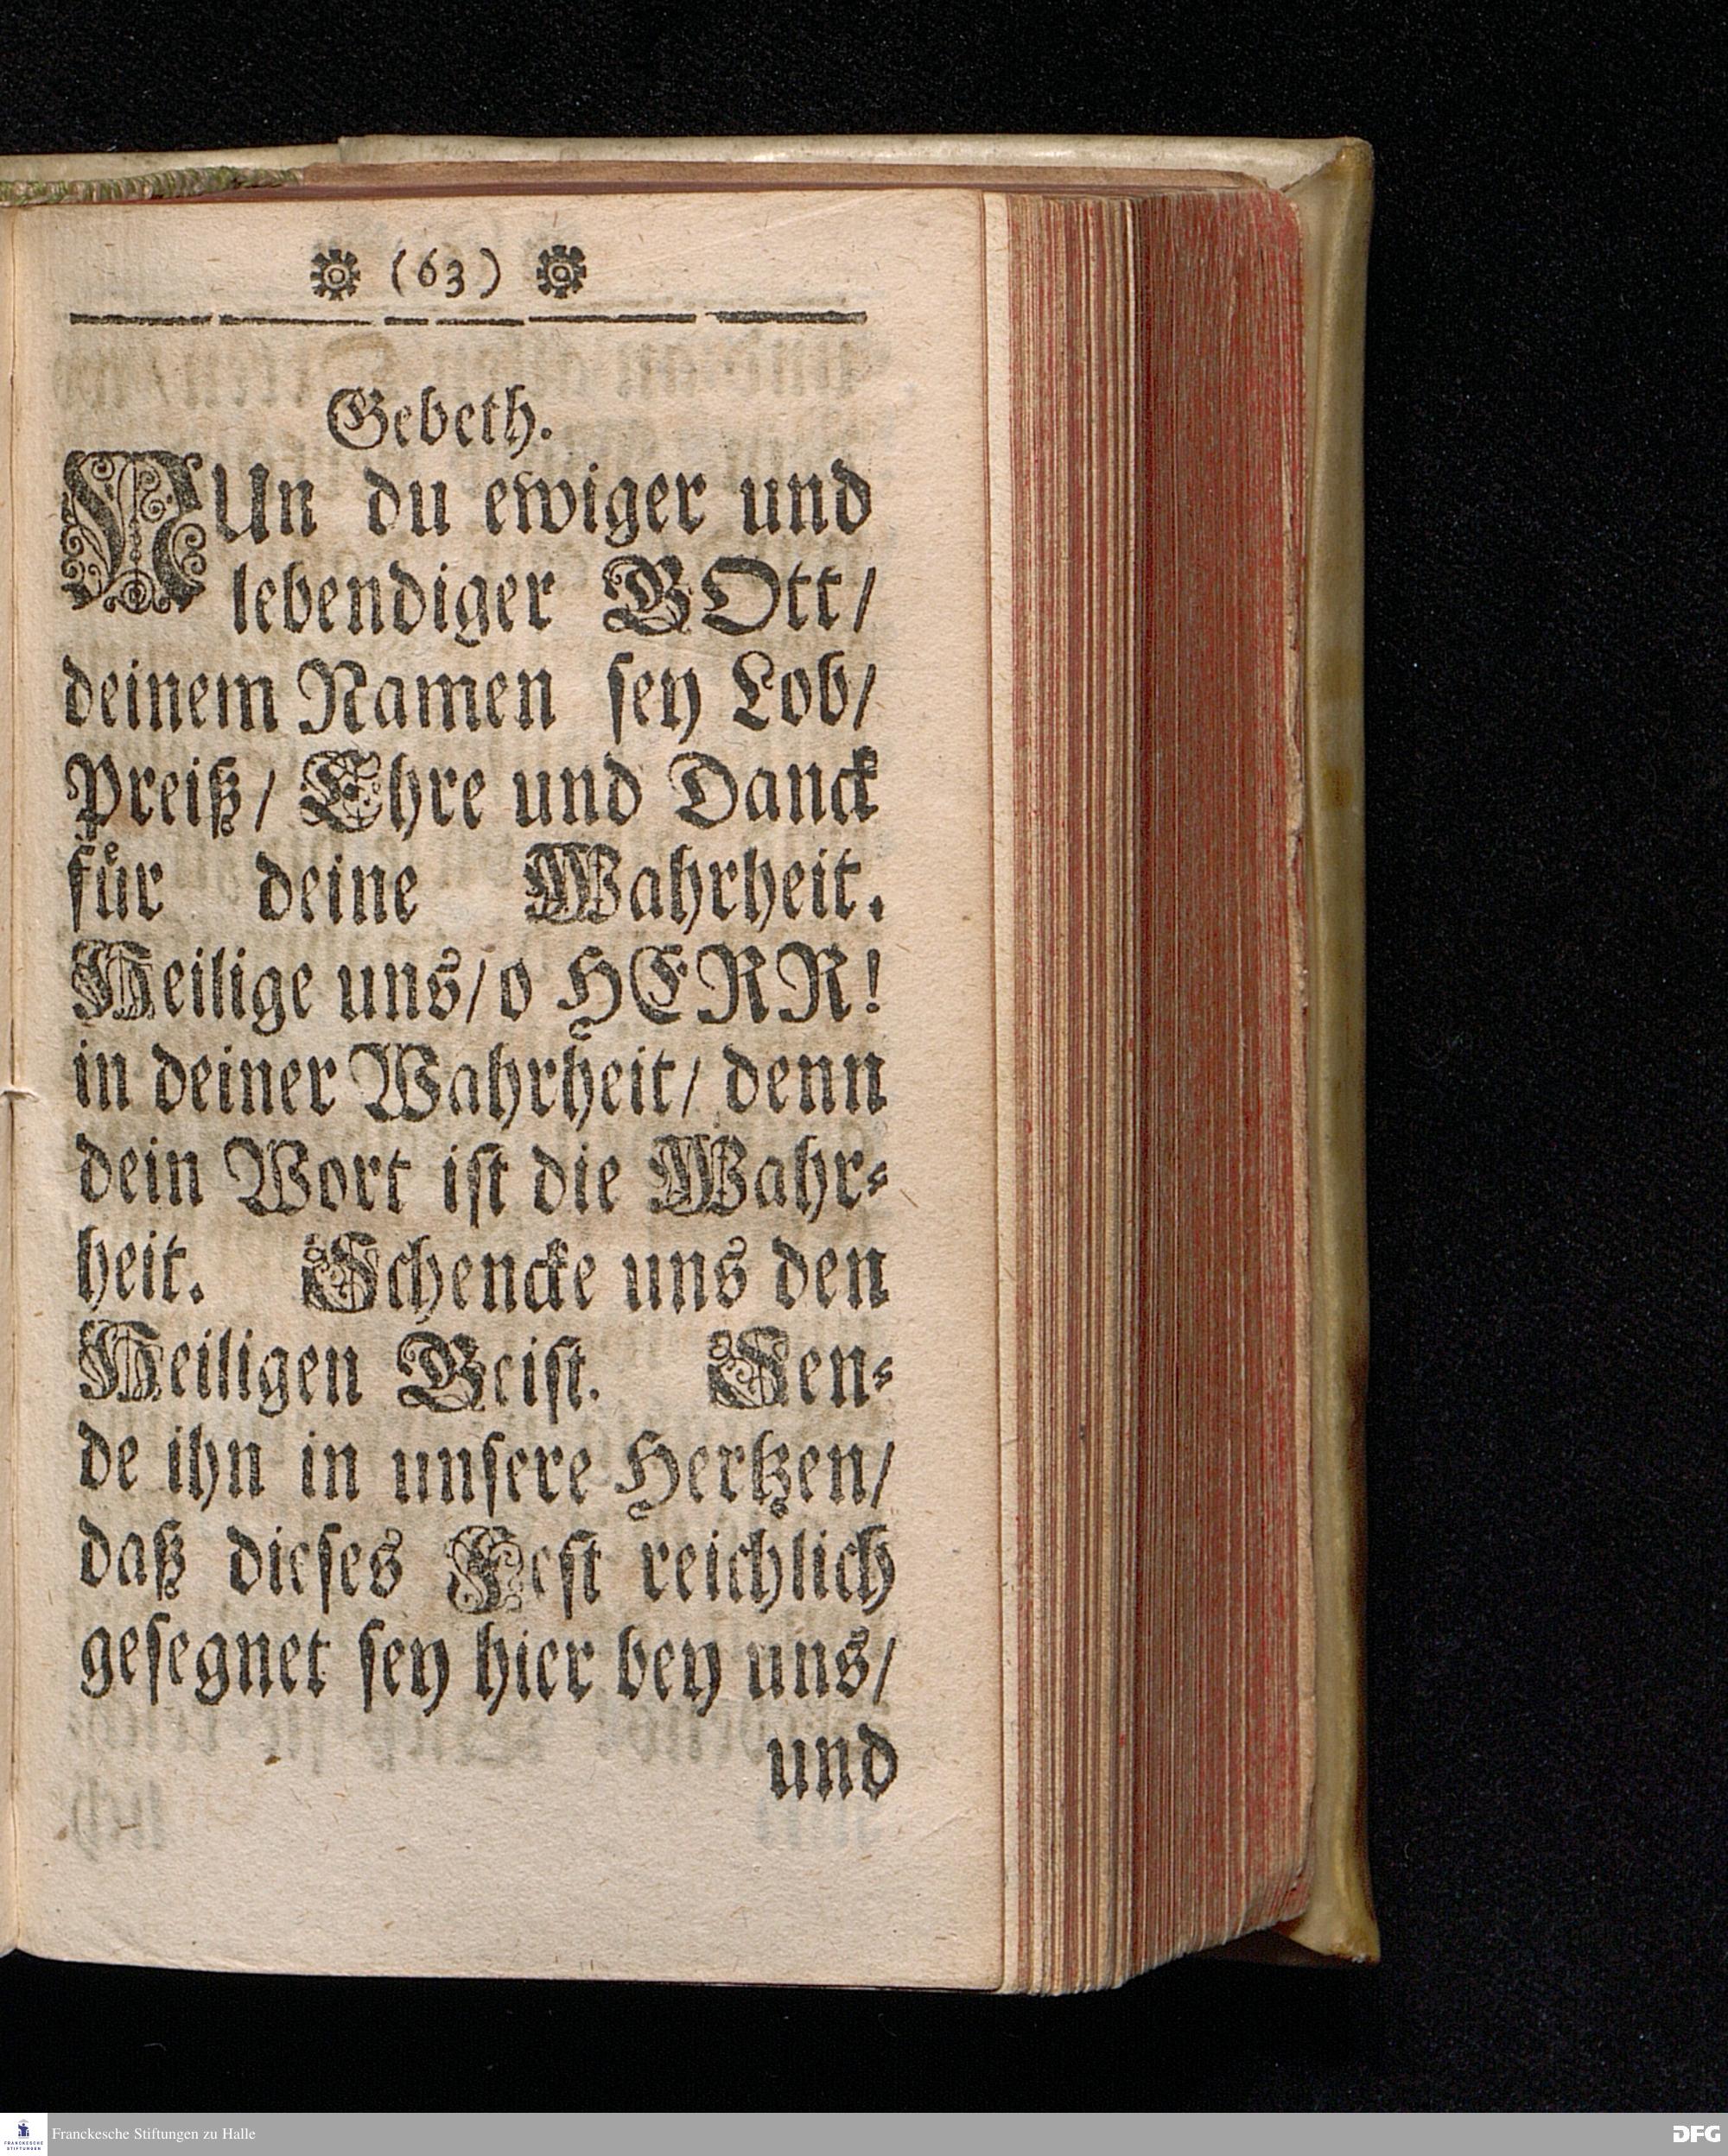 (63)
Gebeth.
NUn du ewiger und
lebendiger GOtt/
deinem Namen sey Lob/
Preiß/ Ehre und Danck
fuͤr deine Wahrheit.
Heilige uns/ o HERR!
in deiner Wahrheit/ denn
dein Wort ist die Wahr-
heit. Schencke uns den
Heiligen Geist. Sen-
de ihn in unsere Hertzen/
daß dieses Fest reichlich
gesegnet sey hier bey uns/
und
FRANCKESCHE
STIFTUNGEN
Franckesche Stiftungen zu Halle
DFG